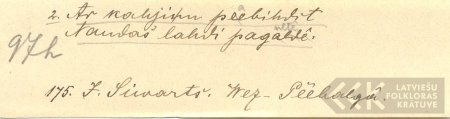 2. Ar kahjihm peebihdit
Naudas lahdi pagaldē.
97h
175. J. Siwarts. Wez-Peebalgā.
LATVIEŠU
FOLKLORAS
KRĀTUVE